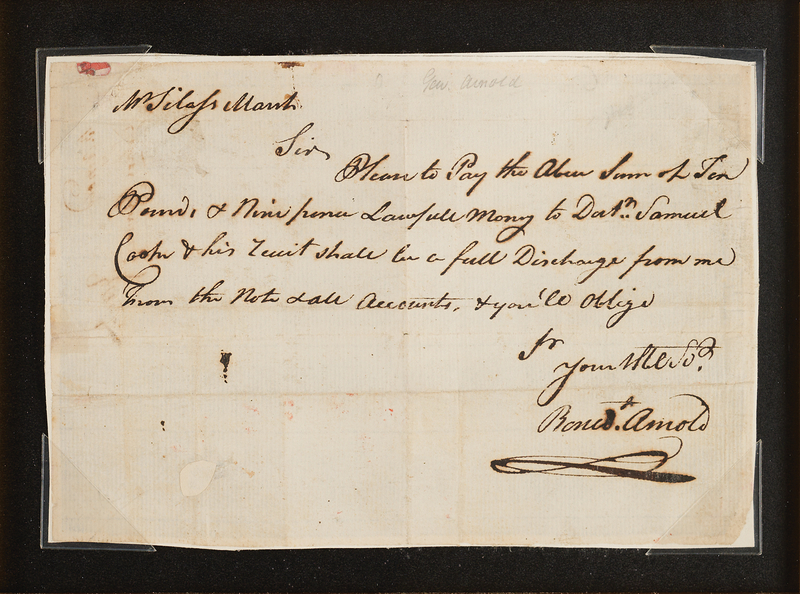 Gen. Arnold
Mr Silass Marsh
Sir
Please to Pay the Above Sum of Ten
Pounds & Nine pence Lawfull Money to Doctn. Samuel
Cook & his Receit shall be a full Discharge from me
From the Note & all Accounts, & you'll Oblige
Sr
Your Hle Sert.
Bened.t Arnold